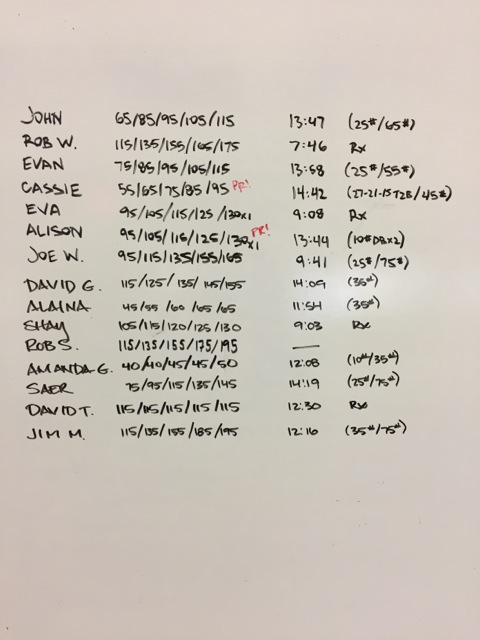 JOHN 65/85/95/105/115 13:47 (25#/65#)
ROB W. 115/135/155/165/175 7:46 Rx
EVAN 75/85/95/105/115 13:58 (25#/55#)
CASSIE 55/65/75/85/95 PR! 14:42 (27-21-15 T2B/45#)
EVA 95/105/115/125/130x1 9:08 Rx
ALISON 95/105/115/125/130x1 PR! 13:44 (10# DBx2)
JOE W. 95/115/135/155/165 9:41 (25#/75#)
DAVID G. 115/125/135/145/155 14:09 (35#)
ALAINA 45/55/60/65/65 11:54 (35#)
SHAY 105/115/120/125/130 9:03 Rx
ROB S. 115/135/155/175/195 —
AMANDA G. 40/40/45/45/50 12:08 (10#/35#)
SAER 75/95/115/135/145 14:19 (25#/75#)
DAVID T. 115/115/115/115/115 12:30 Rx
JIM M. 115/135/155/185/195 12:16 (35#/75#)